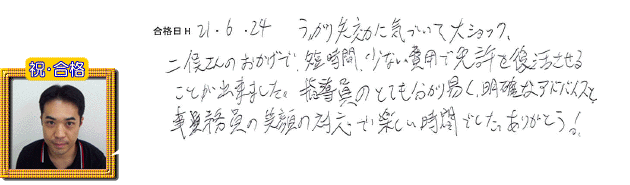 合格日 H 21・6・24 うっかり失効に気づいて大ショック、
二俣さんのおかげで、短時間、少ない費用で免許を復活させる
ことが出来ました。指導員のとても分かり易く、明確なアドバイスと
祝・合格
事務員の笑顔の対応で楽しい時間でした。ありがとう!